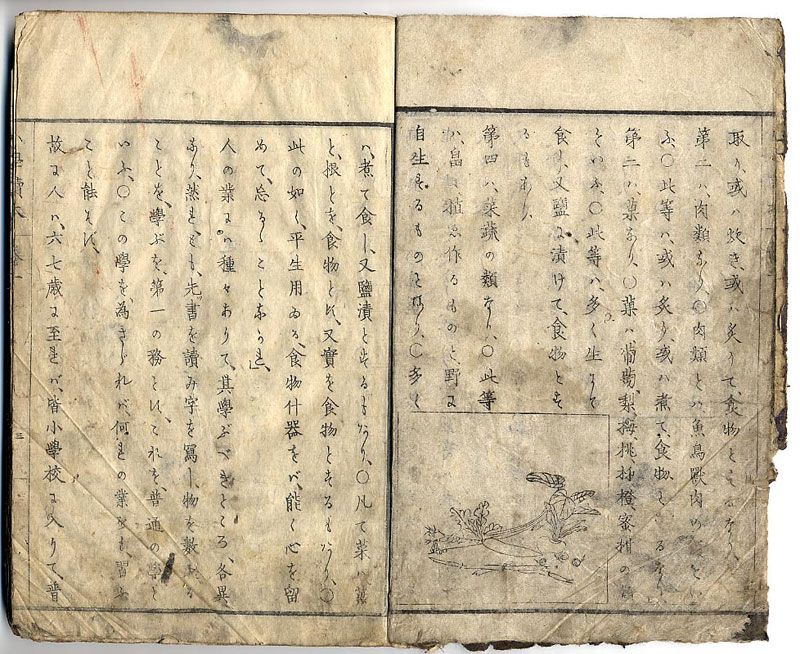 取り、或ハ炊き、或ハ炙りて食物とするなり、
第二ハ、肉類なり、〇肉類とハ、魚鳥獸肉の とい
ふ、〇此等ハ、或ハ炙り、或ハ煮て、食物と るなり、
第三ハ、菓なり、〇菓ハ、葡萄、梨、梅、桃、柿、橙、蜜柑の類
をいふ、〇此等ハ、多く生にて
食し、又鹽に漬けて、食物とす
るもあり、
第四ハ、菜蔬の類なり、〇此等
ハ、畠に植ゑ作るものと、野に
自生するものとあり、〇多く
ハ、煮て食し、又鹽漬とするもあり、〇凡て菜ハ、葉
と、根とを、食物とし、又實を食物とするもあり、〇
此の如く、平生用ゐる、食物什器をバ、能く心を留
めて、忘るゝことなかれ」
人の業にハ種々ありて、其學ぶべきところ、各異
なり、然れども、先書を讀み字を寫し、物を數ふる
ことを、學ぶを、第一の務とし、これを、普通の學と
いふ、〇この學を、為さゞれバ、何れの業をも、習ふ
こと能はず、
故に人ハ、六七歳に至れバ、皆小學校に入りて、普
小學讀本 卷一
三